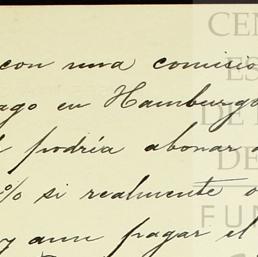 con una comisio
ago en Hamburgo
podría abonar
% si realmente o
y aun pagar el
CEN
ES
DE
DE
FUN